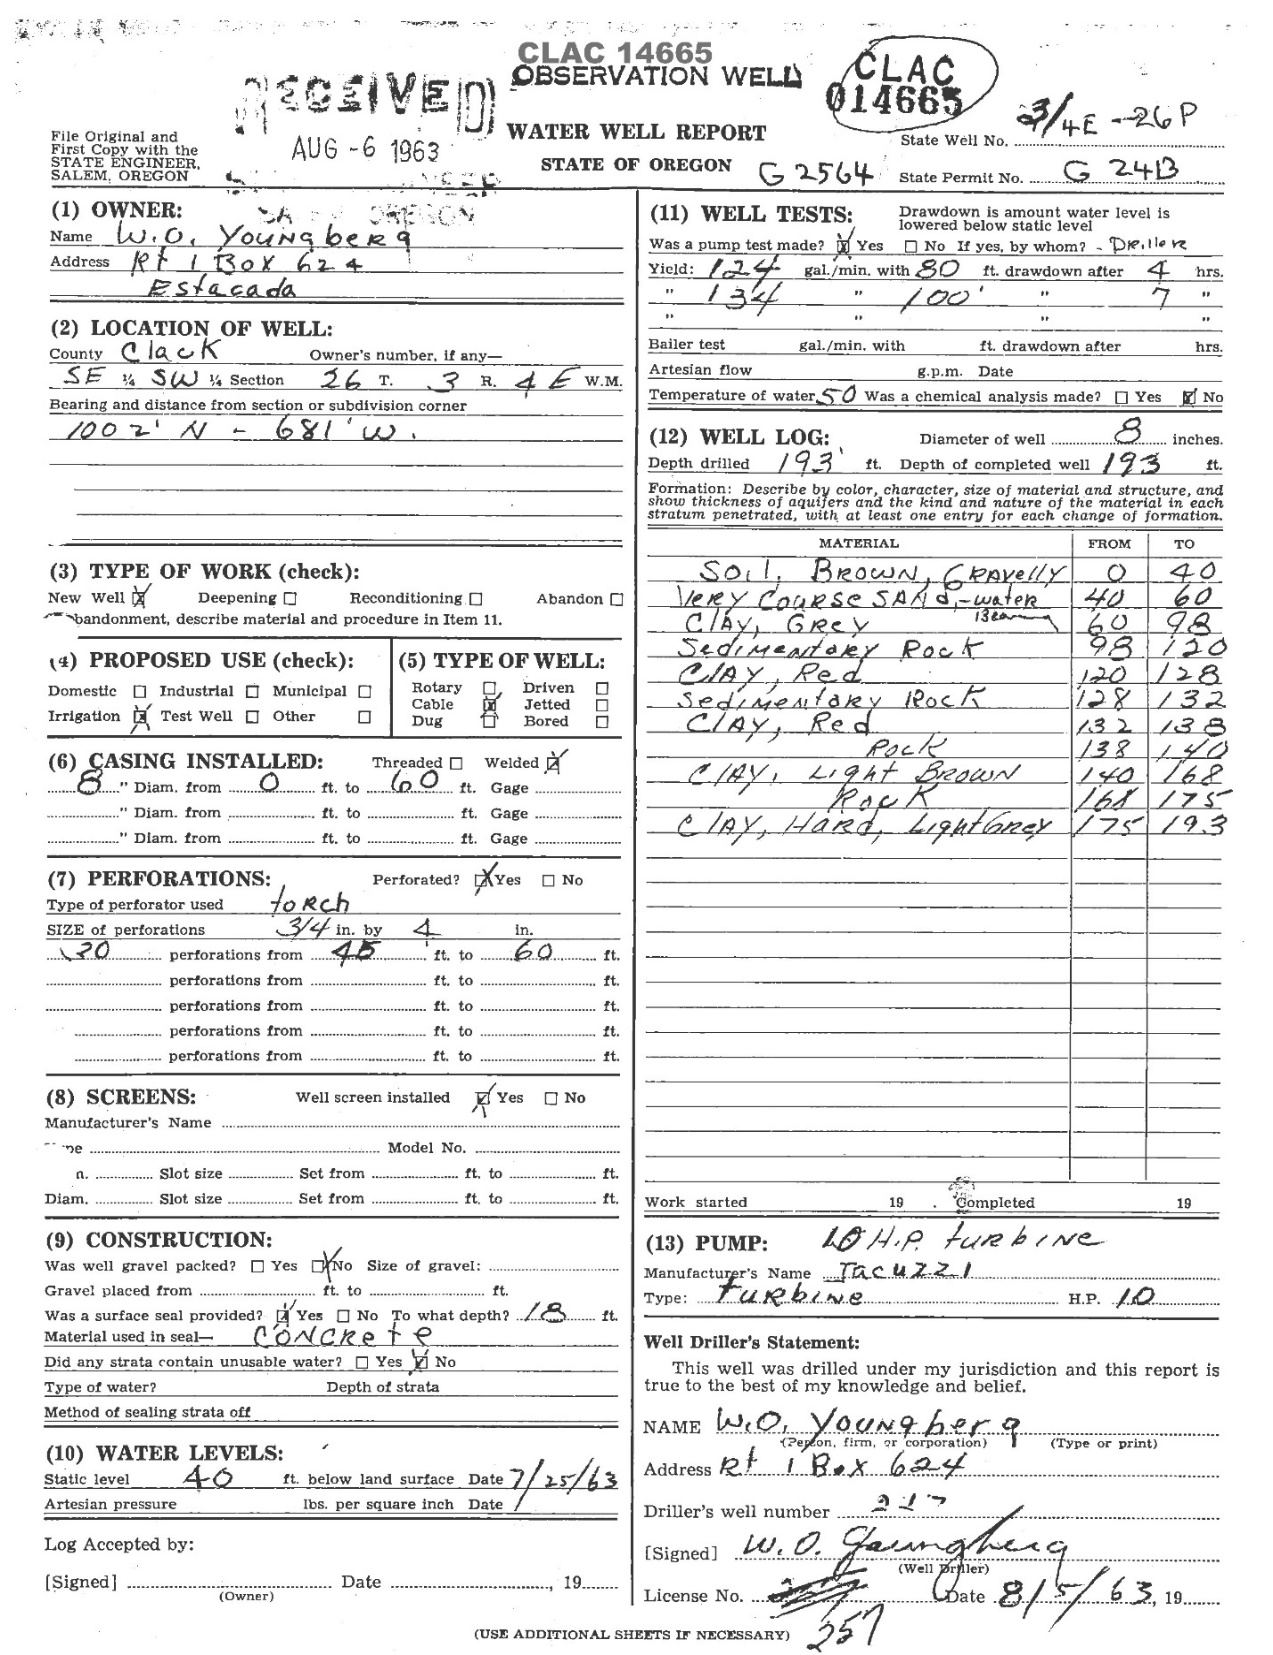 CLAC 14665
OBSERVATION WELL
CLAC
014665
RECEIVED
AUG -6 1963
File Original and
First Copy with the
STATE ENGINEER,
SALEM, OREGON
WATER WELL REPORT
STATE OF OREGON
G 2564
State Well No. 3/4E-26P
State Permit No. G 2413
(1) OWNER:
Name W.O. Youngberg
Address Rt 1 Box 624
Estacada
(2) LOCATION OF WELL:
County Clack Owner's number, if any—
SE ¼ SW ¼ Section 26 T. 3 R. 4 E W.M.
Bearing and distance from section or subdivision corner
1002' N - 681' W.
(3) TYPE OF WORK (check):
New Well ☒ Deepening ☐ Reconditioning ☐ Abandon ☐
bandonment, describe material and procedure in Item 11.
(4) PROPOSED USE (check):
Domestic ☐ Industrial ☐ Municipal ☐
Irrigation ☒ Test Well ☐ Other ☐
(5) TYPE OF WELL:
Rotary ☐ Driven ☐
Cable ☒ Jetted ☐
Dug ☐ Bored ☐
(6) CASING INSTALLED: Threaded ☐ Welded ☒
8 " Diam. from 0 ft. to 60 ft. Gage
" Diam. from ft. to ft. Gage
" Diam. from ft. to ft. Gage
(7) PERFORATIONS: Perforated? ☒ Yes ☐ No
Type of perforator used torch
SIZE of perforations 3/4 in. by 4 in.
perforations from 45 ft. to 60 ft.
perforations from ft. to ft.
perforations from ft. to ft.
perforations from ft. to ft.
perforations from ft. to ft.
(8) SCREENS: Well screen installed ☒ Yes ☐ No
Manufacturer's Name
Model No.
Slot size Set from ft. to ft.
Diam. Slot size Set from ft. to ft.
(9) CONSTRUCTION:
Was well gravel packed? ☐ Yes ☒ No Size of gravel:
Gravel placed from ft. to ft.
Was a surface seal provided? ☒ Yes ☐ No To what depth? 18 ft.
Material used in seal— CONCRete
Did any strata contain unusable water? ☐ Yes ☒ No
Type of water? Depth of strata
Method of sealing strata off
(10) WATER LEVELS:
Static level 40 ft. below land surface Date 7/25/63
Artesian pressure lbs. per square inch Date
Log Accepted by:
[Signed] Date , 19
(Owner)
(11) WELL TESTS: Drawdown is amount water level is
lowered below static level
Was a pump test made? ☒ Yes ☐ No If yes, by whom? Driller
Yield: 124 gal./min. with 80 ft. drawdown after 4 hrs.
" 134 " 100' " 7 "
" " " "
Bailer test gal./min. with ft. drawdown after hrs.
Artesian flow g.p.m. Date
Temperature of water 50 Was a chemical analysis made? ☐ Yes ☒ No
(12) WELL LOG: Diameter of well 8 inches.
Depth drilled 193' ft. Depth of completed well 193 ft.
Formation: Describe by color, character, size of material and structure, and
show thickness of aquifers and the kind and nature of the material in each
stratum penetrated, with at least one entry for each change of formation.
MATERIAL FROM TO
Soil, Brown, Gravelly 0 40
Very Course SANd,-water Bearing 40 60
Clay, Grey 60 98
Sedimentory Rock 98 120
Clay, Red 120 128
Sedimentory Rock 128 132
Clay, Red 132 138
Rock 138 140
Clay, Light Brown 140 168
Rock 168 175
Clay, Hard, Light Grey 175 193
Work started 19 . Completed 19
(13) PUMP: 10 H.P. turbine
Manufacturer's Name Jacuzzi
Type: turbine H.P. 10
Well Driller's Statement:
This well was drilled under my jurisdiction and this report is
true to the best of my knowledge and belief.
NAME W.O. Youngberg
(Person, firm, or corporation) (Type or print)
Address Rt 1 Box 624
Driller's well number
[Signed] W. O. Youngberg
(Well Driller)
License No. 257 Date 8/5/63, 19
(USE ADDITIONAL SHEETS IF NECESSARY)